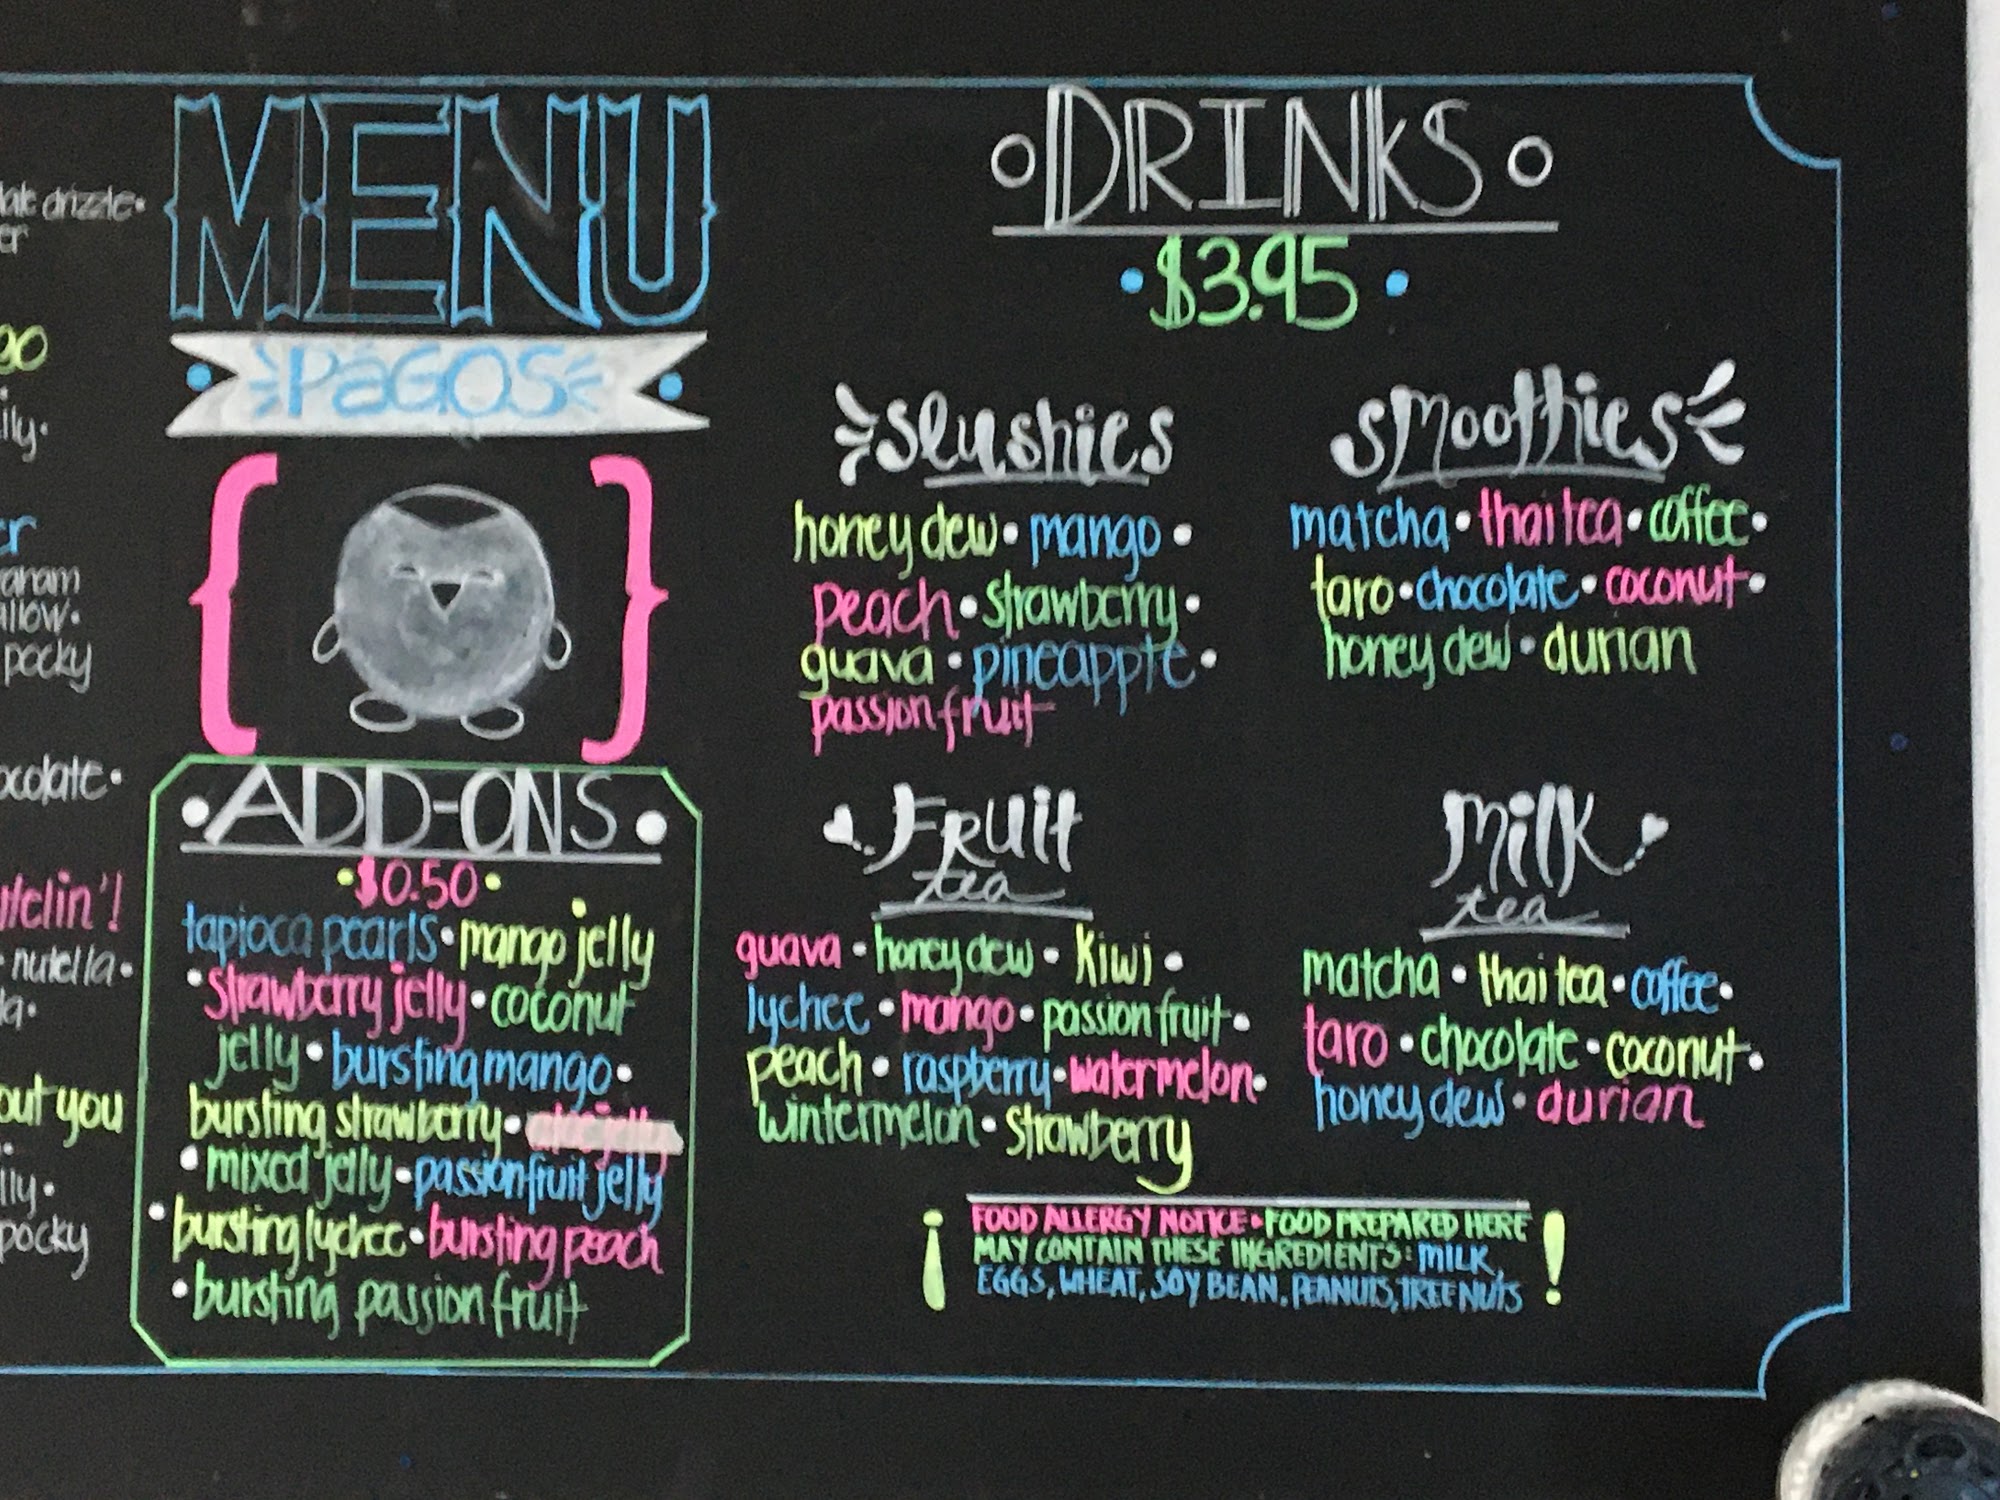 drizzle•
er
go
pocky
MENU
•PAGOS•
ADD-ONS
•$0.50•
tapioca pearls•mango jelly
•strawberry jelly•coconut
jelly•bursting mango•
bursting strawberry•
•mixed jelly•passionfruit jelly
•bursting lychee•bursting peach
•bursting passion fruit
nutella•
out you
pocky
DRINKS
•$3.95•
slushies
honey dew•mango•
peach•strawberry•
guava•pineapple•
passion fruit
smoothies
matcha•thai tea•coffee•
taro•chocolate•coconut•
honey dew•durian
Fruit
tea
guava•honey dew•kiwi•
lychee•mango•passion fruit•
peach•raspberry•watermelon•
wintermelon•strawberry
Milk
tea
matcha•thai tea•coffee•
taro•chocolate•coconut•
honey dew•durian
¡ FOOD ALLERGY NOTICE•FOOD PREPARED HERE !
MAY CONTAIN THESE INGREDIENTS: MILK,
EGGS, WHEAT, SOY BEAN, PEANUTS, TREE NUTS